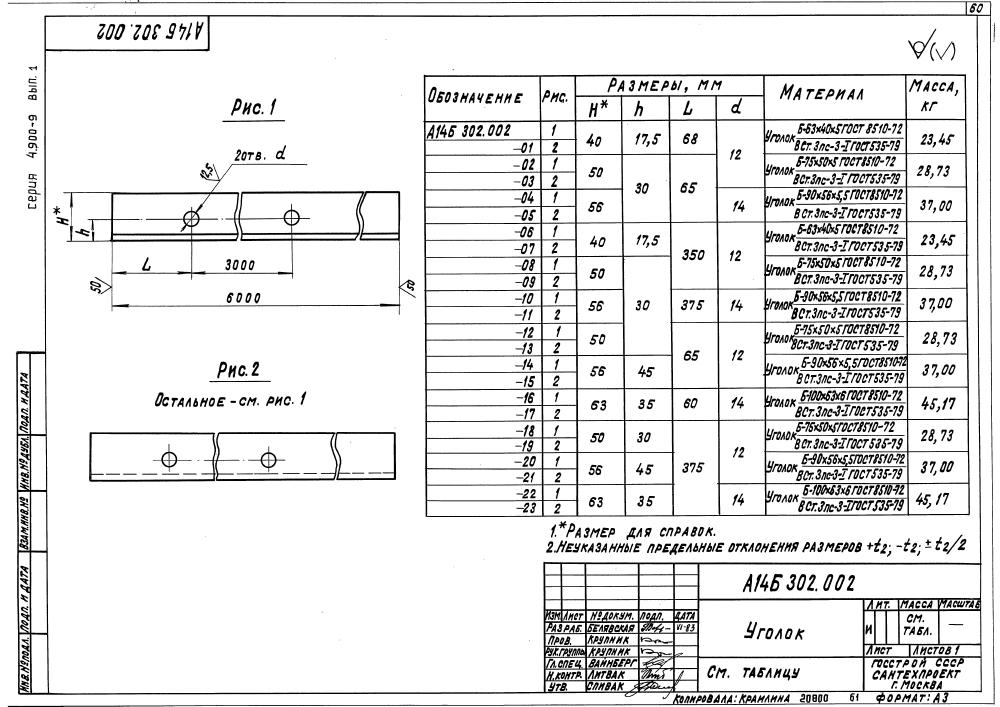 60
А14Б 302.002
серия 4.900-9 вып. 1
Рис. 1
2отв. d
12,5
H*
h
L
3000
6000
50
50
Рис. 2
Остальное - см. рис. 1
√(√)
Обозначение | Рис. | Размеры, мм | Материал | Масса, кг
H* | h | L | d
А14Б 302.002 | 1 | 40 | 17,5 | 68 | 12 | Уголок Б-63х40х5 ГОСТ 8510-72 / ВСт.3пс-3-I ГОСТ 535-79 | 23,45
-01 | 2
-02 | 1 | 50 | 30 | 65 | Уголок Б-75х50х5 ГОСТ 8510-72 / ВСт.3пс-3-I ГОСТ 535-79 | 28,73
-03 | 2
-04 | 1 | 56 | 14 | Уголок Б-90х56х5,5 ГОСТ 8510-72 / ВСт.3пс-3-I ГОСТ 535-79 | 37,00
-05 | 2
-06 | 1 | 40 | 17,5 | 350 | 12 | Уголок Б-63х40х5 ГОСТ 8510-72 / ВСт.3пс-3-I ГОСТ 535-79 | 23,45
-07 | 2
-08 | 1 | 50 | 30 | Уголок Б-75х50х5 ГОСТ 8510-72 / ВСт.3пс-3-I ГОСТ 535-79 | 28,73
-09 | 2
-10 | 1 | 56 | 375 | 14 | Уголок Б-90х56х5,5 ГОСТ 8510-72 / ВСт.3пс-3-I ГОСТ 535-79 | 37,00
-11 | 2
-12 | 1 | 50 | 65 | 12 | Уголок Б-75х50х5 ГОСТ 8510-72 / ВСт.3пс-3-I ГОСТ 535-79 | 28,73
-13 | 2
-14 | 1 | 56 | 45 | Уголок Б-90х56х5,5 ГОСТ 8510-72 / ВСт.3пс-3-I ГОСТ 535-79 | 37,00
-15 | 2
-16 | 1 | 63 | 35 | 60 | 14 | Уголок Б-100х63х6 ГОСТ 8510-72 / ВСт.3пс-3-I ГОСТ 535-79 | 45,17
-17 | 2
-18 | 1 | 50 | 30 | 375 | 12 | Уголок Б-75х50х5 ГОСТ 8510-72 / ВСт.3пс-3-I ГОСТ 535-79 | 28,73
-19 | 2
-20 | 1 | 56 | 45 | Уголок Б-90х56х5,5 ГОСТ 8510-72 / ВСт.3пс-3-I ГОСТ 535-79 | 37,00
-21 | 2
-22 | 1 | 63 | 35 | 14 | Уголок Б-100х63х6 ГОСТ 8510-72 / ВСт.3пс-3-I ГОСТ 535-79 | 45,17
-23 | 2
1.*Размер для справок.
2.Неуказанные предельные отклонения размеров +t2; -t2; ± t2/2
Инв.№подл. Подп. и дата Взам.инв.№ Инв.№дубл. Подп. и дата
А14Б 302.002
Изм. Лист №докум. Подп. Дата
Разраб. Белявская VI-83
Пров. Крупник
Рук.группы Крупник
Гл.спец. Вайнберг
Н.контр. Литвак
Утв. Спивак
Уголок
См. таблицу
Лит. Масса Масштаб
И см. табл. —
Лист Листов 1
Госстрой СССР
Сантехпроект
г. Москва
Копировала: Крамлина 20800 61 Формат: А3